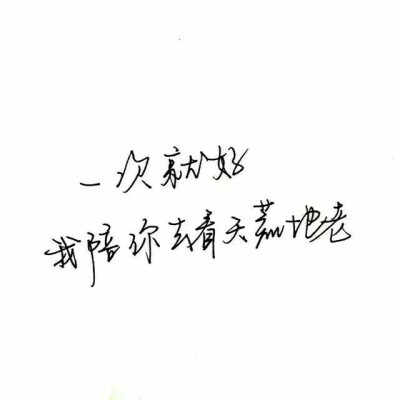 一次就好
我陪你去看天荒地老